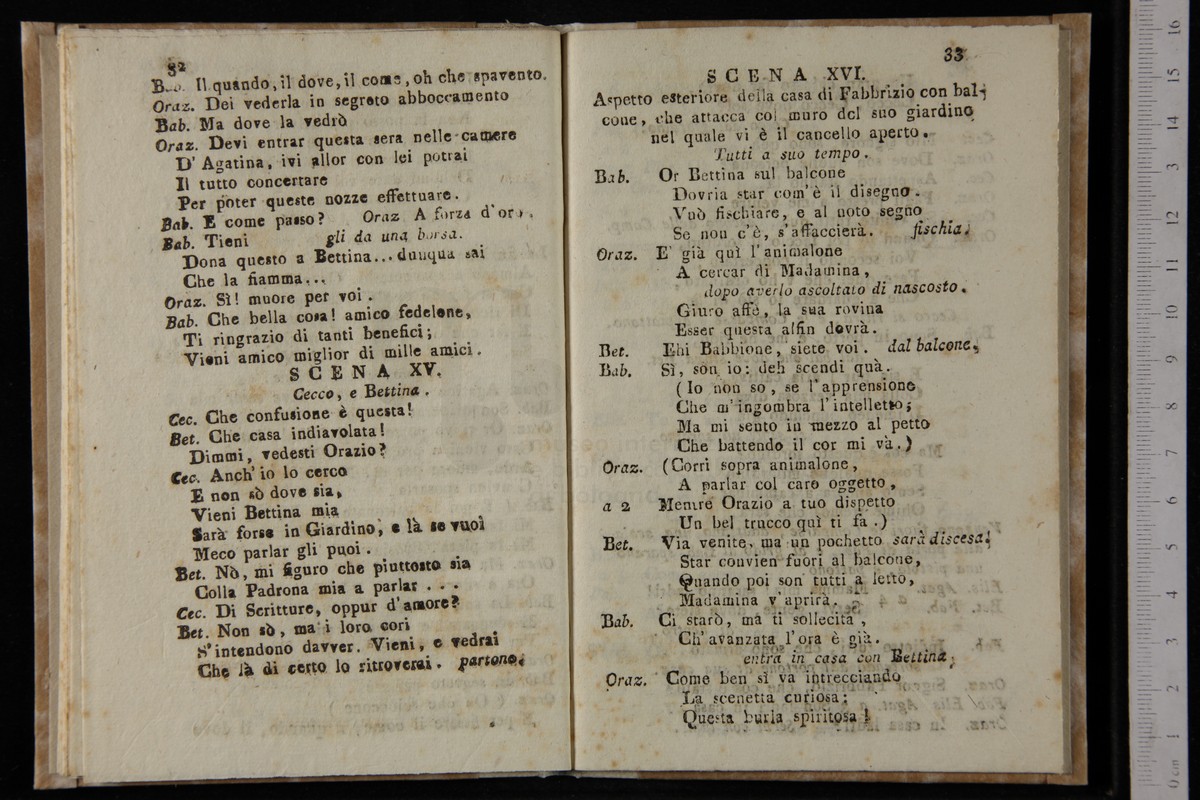 32
Bab. Il quando, il dove, il come, oh che spavento.
Oraz. Dei vederla in segreto abboccamento
Bab. Ma dove la vedrò
Oraz. Devi entrar questa sera nelle camere
D' Agatina, ivi allor con lei potrai
Il tutto concertare
Per poter queste nozze effettuare.
Bab. E come passo? Oraz A forza d'oro.
Bab. Tieni gli da una borsa.
Dona questo a Bettina... dunqua sai
Che la fiamma...
Oraz. Sì! muore per voi.
Bab. Che bella cosa! amico fedelone,
Ti ringrazio di tanti benefici;
Vieni amico miglior di mille amici.
SCENA XV.
Cecco, e Bettina.
Cec. Che confusione è questa!
Bet. Che casa indiavolata!
Dimmi, vedesti Orazio?
Cec. Anch' io lo cerco
E non sò dove sia,
Vieni Bettina mia
Sarà forse in Giardino, e là se vuoi
Meco parlar gli puoi.
Bet. Nò, mi figuro che piuttosto sia
Colla Padrona mia a parlar . . .
Cec. Di Scritture, oppur d'amore?
Bet. Non sò, ma i loro cori
S'intendono davver. Vieni, e vedrai
Che là di certo lo ritroverai. partono.
33
SCENA XVI.
Aspetto esteriore della casa di Fabbrizio con bal-
cone, che attacca col muro del suo giardino
nel quale vi è il cancello aperto.
Tutti a suo tempo.
Bab. Or Bettina sul balcone
Dovria star com'è il disegno.
Vuò fischiare, e al noto segno
Se non c'è, s'affaccierà. fischia.
Oraz. E' già quì l'animalone
A cercar di Madamina,
dopo averlo ascoltato di nascosto.
Giuro affè, la sua rovina
Esser questa alfin dovrà.
Bet. Ehi Babbione, siete voi. dal balcone.
Bab. Sì, son io: deh scendi quà.
(Io non so, se l'apprensione
Che m'ingombra l'intelletto;
Ma mi sento in mezzo al petto
Che battendo il cor mi và.)
Oraz. (Corri sopra animalone,
A parlar col caro oggetto,
a 2 Mentre Orazio a tuo dispetto
Un bel trucco quì ti fa.)
Bet. Via venite, ma un pochetto sarà discesa.
Star convien fuori al balcone,
Quando poi son tutti a letto,
Madamina v'aprirà.
Bab. Ci starò, ma ti sollecita,
Ch'avanzata l'ora è già.
entra in casa con Bettina.
Oraz. Come ben si va intrecciando
La scenetta curiosa;
Questa burla spiritosa!